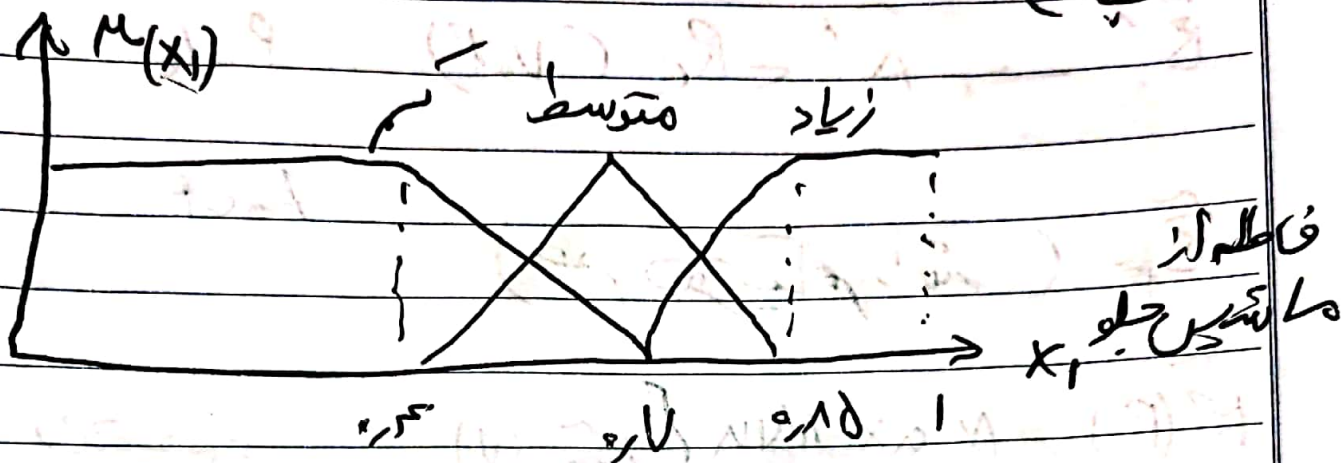 μ(x₁)
کم متوسط زیاد
فاصله از
ماشین جلو
x₁
۰٫۴ ۰٫۷ ۰٫۸۵ ۱